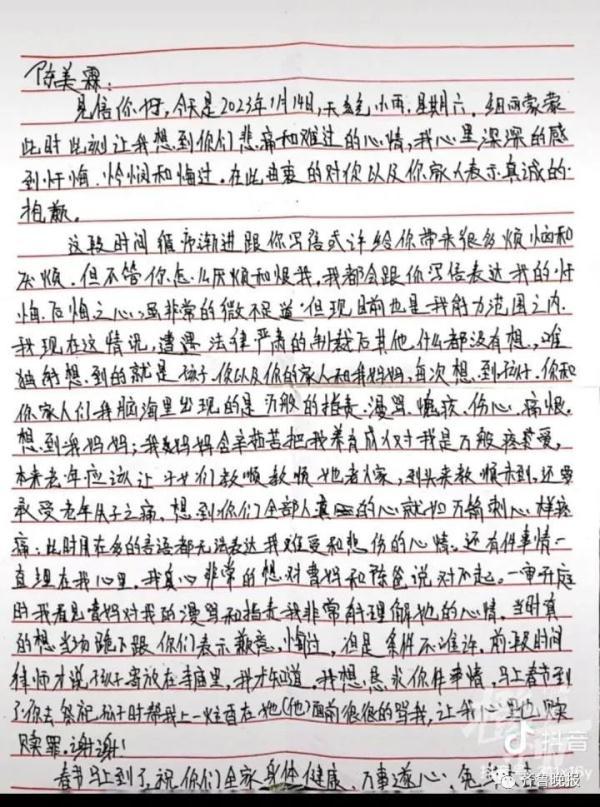 陈美霖：
见信你好，今天是2023年1月14日，天气小雨，星期六，细雨蒙蒙
此时此刻让我想到你们悲痛和难过的心情，我心里深深的感
到忏悔、怜悯和悔过。在此由衷的对你以及你家人表示真诚的
抱歉。
这段时间循序渐进跟你写信或许给你带来很多烦恼和
厌烦，但不管你怎么厌烦和恨我，我都会跟你写信表达我的忏
悔、后悔之心，虽非常的微不足道，但现目前也是我能力范围之内，
我现在这情况，遭遇法律严肃的判裁后其他什么都没有想，唯
独能想到的就是孩子、你以及你的家人和我妈妈，每次想到孩子、你和
你家人们我脑海里出现的是万般的指责、漫骂、懒孩、伤心、痛恨，
想到我妈妈；我妈妈含辛茹苦把我养育成人对我是万般疼爱，
本来老年应该让子女们孝顺孝顺她老人家，到头来孝顺未到，还要
承受老年失子之痛，想到你们全部人真的心就如万箭刺心一样疼
痛；此时月在多的言语都无法表达我难受和悲伤的心情。还有件事情一
直埋在我心里，我真心非常的想对曹妈和陈爸说对不起。一审开庭
时我看见曹妈对我的漫骂和指责我非常能理解她的心情，当时真
的想当场跪下跟你们表示歉意、悔过，但是条件不准许。前段时间
律师才说孩子寄放在寺庙里，我才知道，我想恳求你件事情，马上春节到
了你去祭祀孩子时帮我上一炷香在她（他）面前很很的骂我，让我心里也赎
赎罪。谢谢！
春节马上到了，祝你们全家身体健康、万事遂心，兔年
抖音
齐鲁晚报